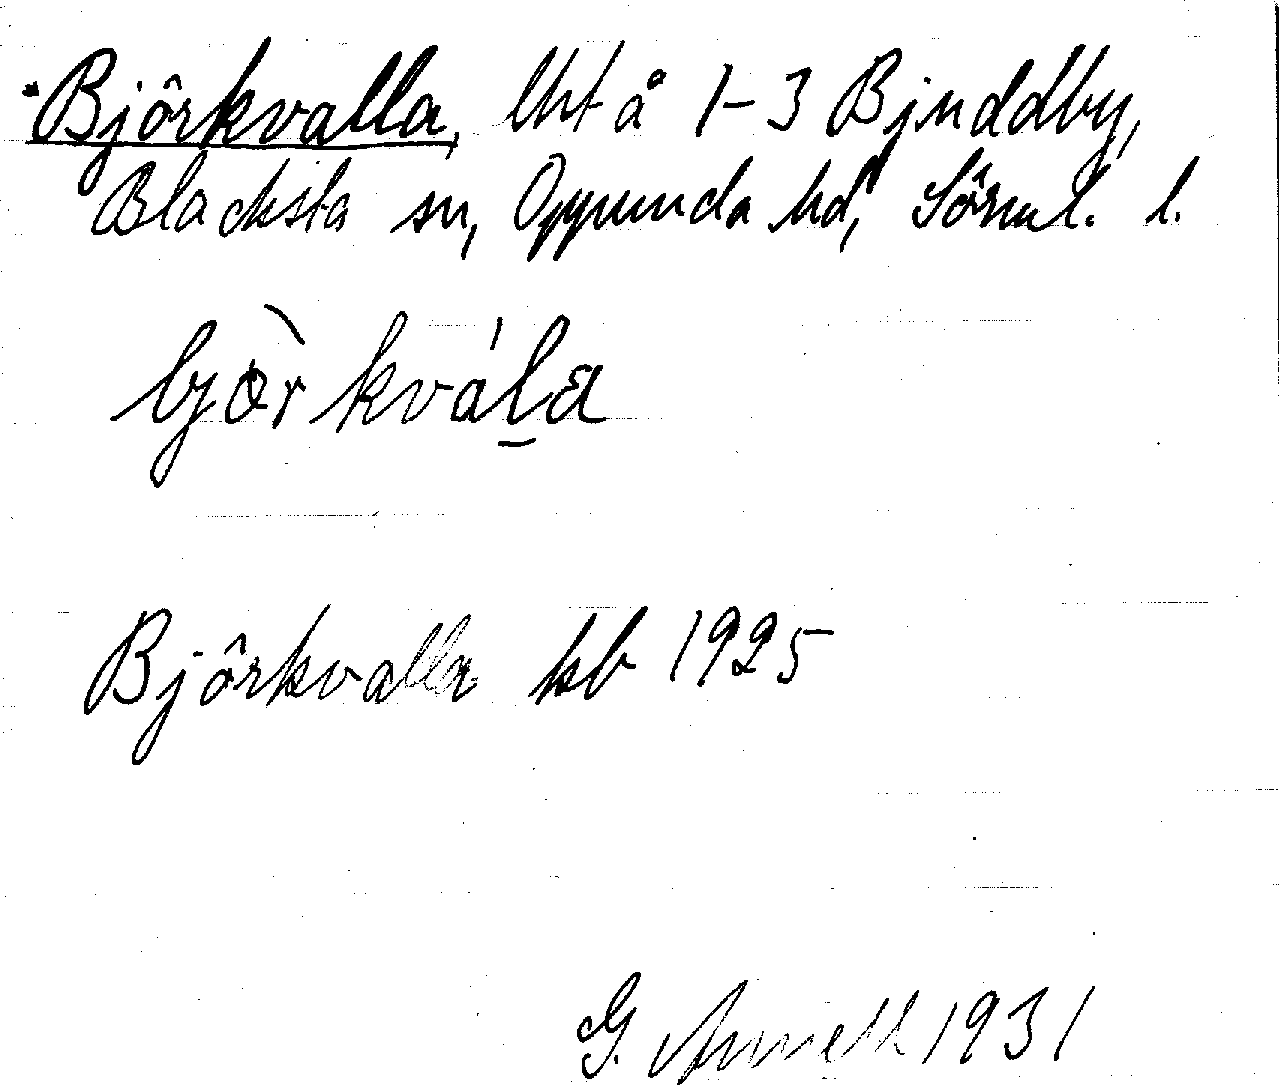 *Björkvalla, lht å 1-3 Bjuddby,
Blacksta sn, Oppunda hd, Sörml. l.
bjö̀rkvála
Björkvalla kb 1925
G. Arnell 1931